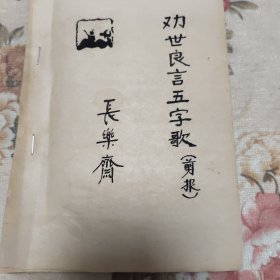 劝世良言五字歌(剪报)
長樂齋